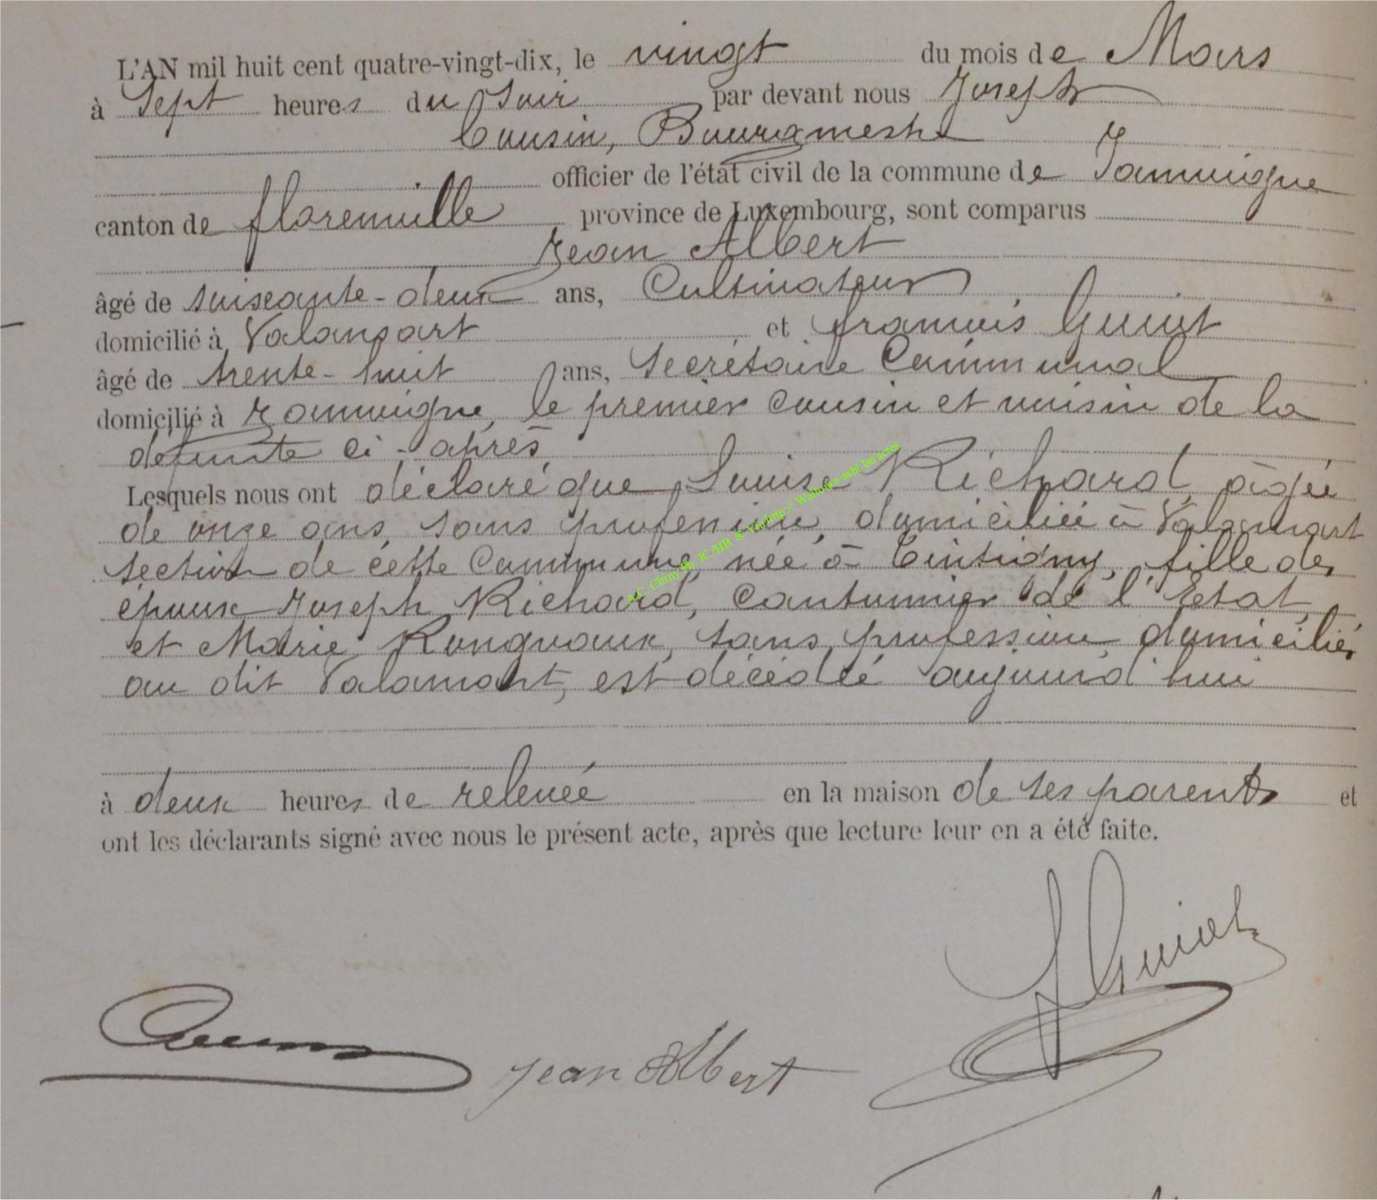 L'AN mil huit cent quatre-vingt-dix, le vingt du mois de Mars
à Sept heures du Soir par devant nous Joseph
Cousin, Bourgmestre
officier de l'état civil de la commune de Jamoigne
canton de florenville province de Luxembourg, sont comparus
Jean Albert
âgé de soixante-deux ans, Cultivateur
domicilié à Valansart et françois Guiot
âgé de trente-huit ans, Secrétaire Communal
domicilié à Jamoigne, le premier cousin et voisin de la
défunte ci-après
Lesquels nous ont déclaré que Louise Richard, âgée
de onze ans, sans profession, domiciliée à Valansart
section de cette Commune, née à Tintigny, fille des
époux Joseph Richard, Cantonnier de l'Etat,
et Marie Rongvaux, sans profession, domiciliés
au dit Valansart, est décédée aujourd'hui
à deux heures de relevée en la maison de ses parents et
ont les déclarants signé avec nous le présent acte, après que lecture leur en a été faite.
Jean Albert
F Guiot